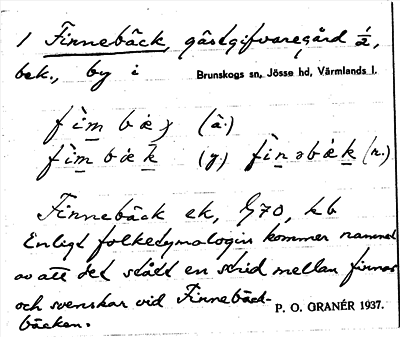 1 Finnebäck, gästgifvaregård ½,
bek., by i Brunskogs sn, Jösse hd, Värmlands l.
(ä.)
(y.) (n.)
Finnebäck ek, G70, kb
Enligt folketymologin kommer namnet
av att det stått en strid mellan finnar
och svenskar vid Finnebäck-
bäcken. P. O. GRANÉR 1937.